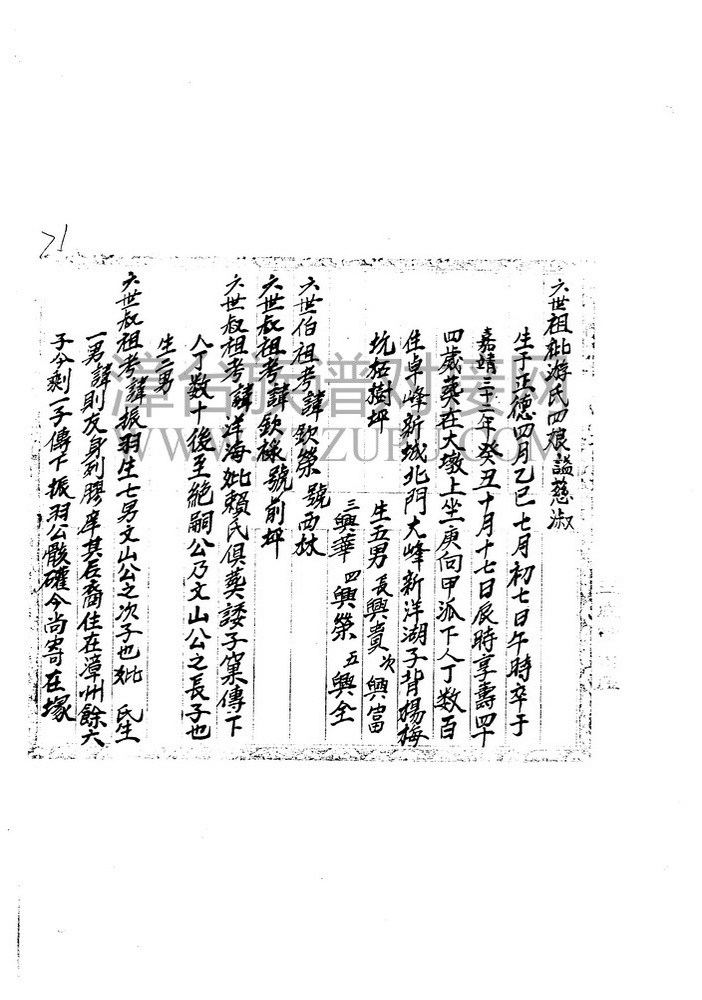 71
六世祖妣游氏四娘謚慈淑
生于正德四月乙巳七月初七日午時卒于
嘉靖三十二年癸丑十月十七日辰時享壽四十
四歲葬在大墩上坐庚向甲派下人丁数百
住卓峰新城北門大峰新洋湖子背楊梅
坑柘樹坪
生五男 長興貴 次興富
三興華 四興榮 五興全
六世伯祖考諱欽榮 號西林
六世叔祖考諱欽祿 號前坪
六世叔祖考諱洋海妣賴氏俱葬諉子窠傳下
人丁数十後至絶嗣公乃文山公之長子也
生二男
六世叔祖考諱振羽生七男文山公之次子也妣 氏生
一男諱則友身列膠庠其后裔住在漳州餘六
子今剩一子傳下振羽公骸礶今尚寄在塚
漳台族譜对接网